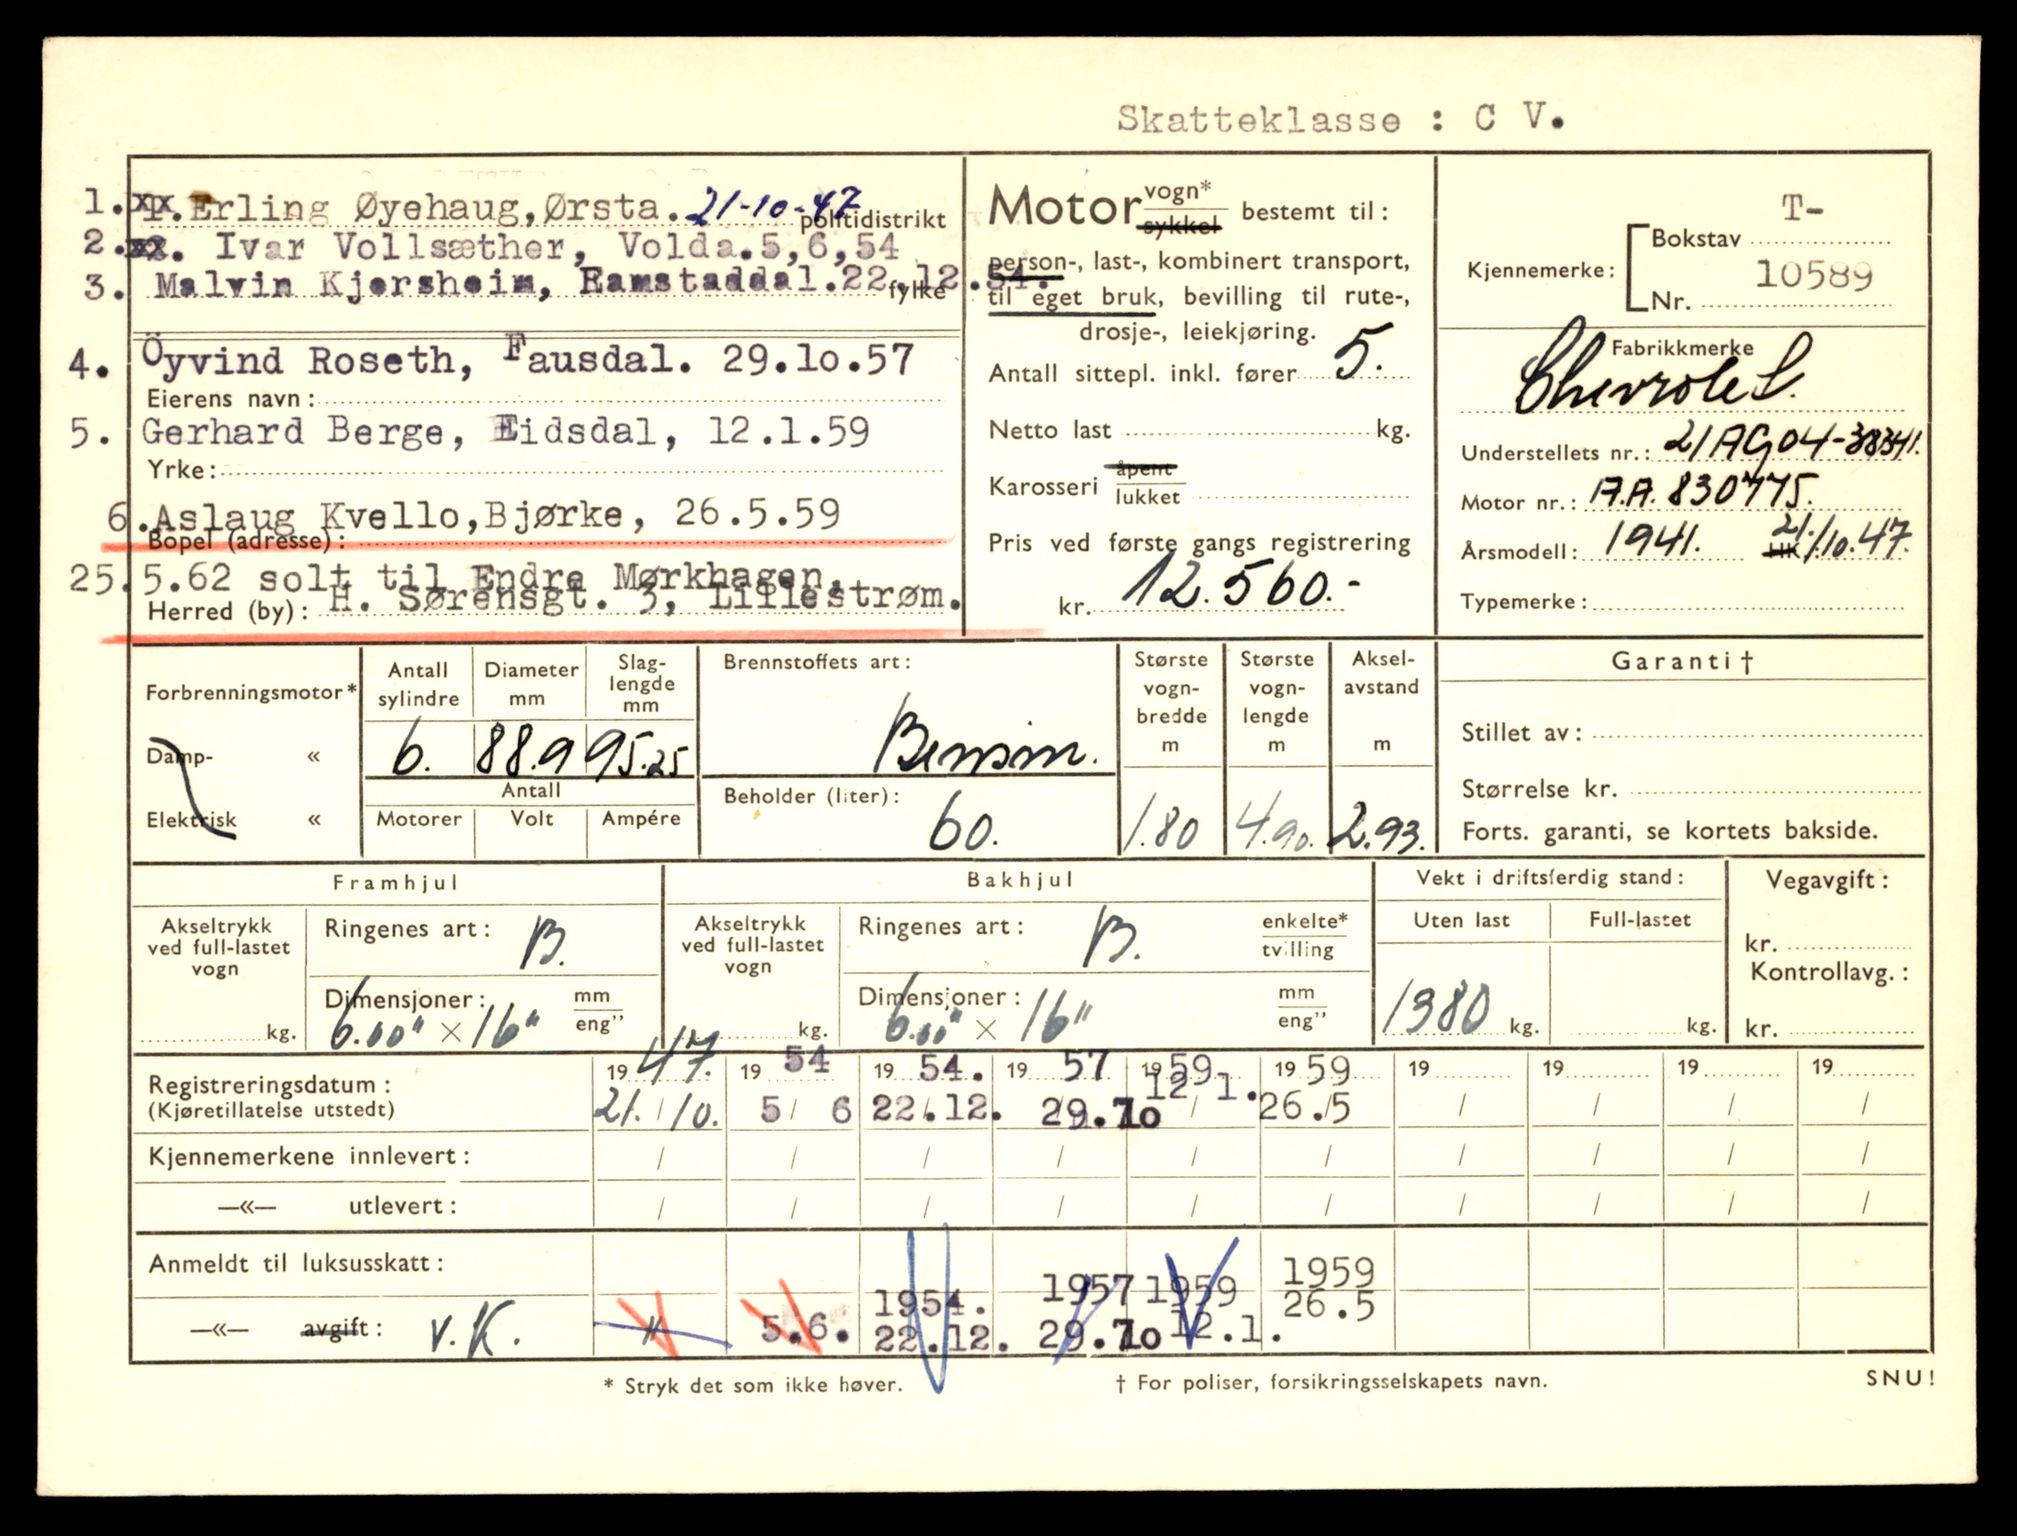 Skatteklasse : C V.
1. Erling Øyehaug, Ørsta. 21-10-47 politidistrikt
2. Ivar Vollsæther, Volda. 5,6,54
3. Malvin Kjersheim, Ramstaddal. 22.12.54. fylke
4. Öyvind Roseth, Fausdal. 29.10.57
Eierens navn :
5. Gerhard Berge, Eidsdal, 12.1.59
Yrke :
6. Aslaug Kvello, Bjørke, 26.5.59
Bopel (adresse) :
25.5.62 solt til Endre Mørkhagen,
Herred (by) : H. Sørensgt. 3, Lillestrøm.
Motor vogn* sykkel bestemt til :
person-, last-, kombinert transport,
til eget bruk, bevilling til rute-,
drosje-, leiekjøring.
Antall sittepl. inkl. fører 5.
Netto last kg.
Karosseri åpent lukket
Pris ved første gangs registrering
kr. 12.560.-
Kjennemerke : Bokstav T-
Nr. 10589
Fabrikkmerke
Chevrolet.
Understellets nr. : 21AG04-38341.
Motor nr. : A.A. 830775.
Årsmodell : 1941. 21/10.47.
Typemerke :
Forbrenningsmotor*
Damp- «
Elektrisk «
Antall sylindre 6.
Diameter mm 88.9
Slaglengde mm 95.25
Antall
Motorer Volt Ampére
Brennstoffets art :
Bensin.
Beholder (liter) :
60.
Største vogn-bredde m 1.80
Største vogn-lengde m 4.90.
Aksel-avstand m 2.93.
Garanti †
Stillet av :
Størrelse kr.
Forts. garanti, se kortets bakside.
Framhjul
Akseltrykk ved full-lastet vogn kg.
Ringenes art : B.
Dimensjoner : mm eng”
6.00" × 16"
Bakhjul
Akseltrykk ved full-lastet vogn kg.
Ringenes art : B. enkelte* tvilling
Dimensjoner : mm eng”
6.00" × 16"
Vekt i driftsferdig stand :
Uten last Full-lastet
1380 kg. kg.
Vegavgift :
kr.
Kontrollavg. :
kr.
Registreringsdatum : 1947. 1954 1954. 1957 1959 1959 19 19 19 19
(Kjøretillatelse utstedt) 21./10. 5/6 22.12. 29.10 12 1. 26./5 / / / /
Kjennemerkene innlevert : / / / / / / / / / /
—«— utlevert : / / / / / / / / / /
Anmeldt til luksusskatt : 1954. 1957 1959 1959
—«— avgift : v.K. " 5.6. 22.12. 29.10 12.1. 26.5
* Stryk det som ikke høver.
† For poliser, forsikringsselskapets navn.
SNU!